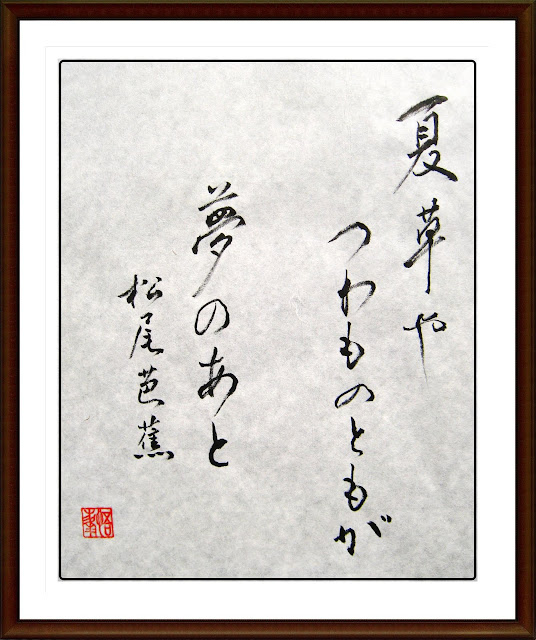 夏草や
つわものともが
夢のあと
松尾芭蕉